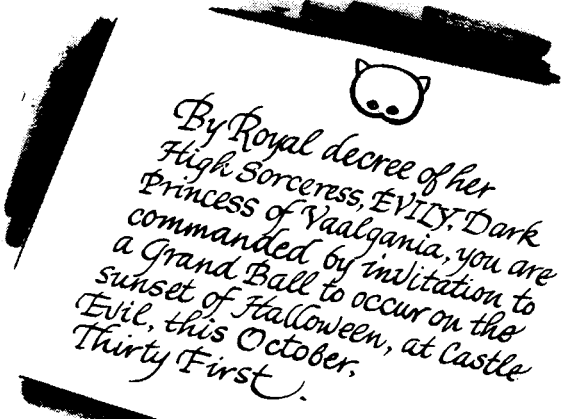 By Royal decree of her
High Sorceress, EVILY, Dark
Princess of Vaalgania, you are
commanded by invitation to
a Grand Ball to occur on the
sunset of Halloween, at Castle
Evil, this October,
Thirty First.